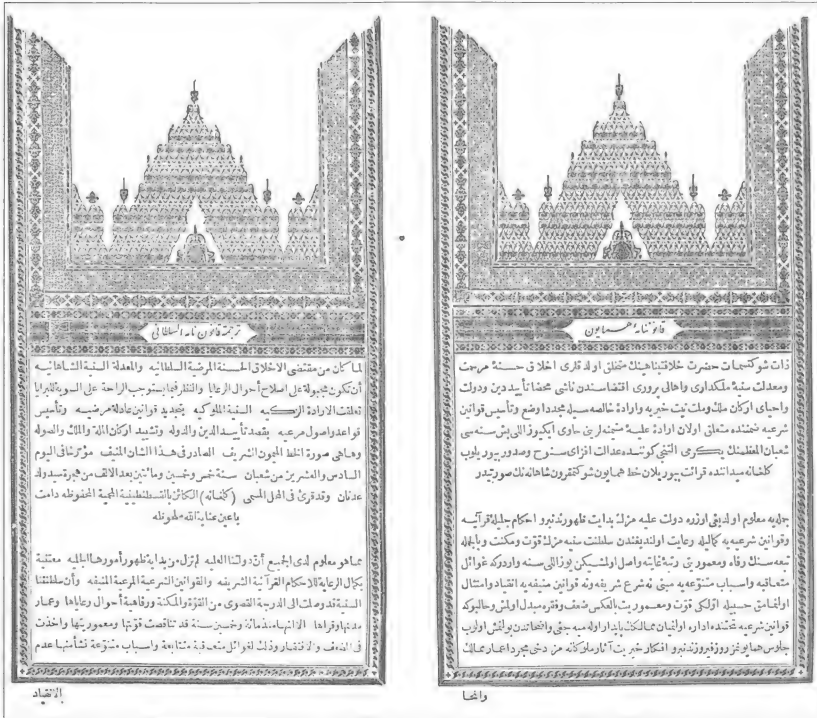 قانوننامهٔ همایون
ذات شوكتسمات حضرت خلافتپناهینك متخلق اولدقلری اخلاق حسنهٔ مرحمت
ومعدلت سنیهٔ ملكداری واهالی پروری اقتضاسندن ناشی محضا تأیید دین ودولت
واحیای اركان ملك وملت نیت خیریه وارادهٔ خالصه سیله مجددا وضع وتأسیس قوانین
شرعیه ضمننده متعلق اولان ارادهٔ علیهٔ متیمنه لرینی حاوی ایكیوز اللی بش سنه سی
شعبان المعظمنك یكرمی التنجی كوننده عدالت افزای سنوح وصدور بیوریلوب
كلخانه میداننده قرائت بیوریلان خط همایون شوكتمقرون شاهانه نك صورتیدر
جمله یه معلوم اولدیغی اوزره دولت علیه مزك بدایت ظهورندنبرو احكام جلیلهٔ قرآنیه
وقوانین شرعیه یه كمالیله رعایت اولندیغندن سلطنت سنیه مزك قوت ومكنت وبالجمله
تبعه سنك رفاه ومعموریتی رتبهٔ غایته واصل اولمشیكن یوز اللی سنه واردركه غوائل
متعاقبه واسباب متنوعه یه مبنی نه شرع شریفه ونه قوانین منیفه یه انقیاد وامتثال
اولنمامق حسبیله اولكی قوت ومعموریت بالعكس ضعف وفقره مبدل اولمش وحالبوكه
قوانین شرعیه تحتنده اداره اولنمیان ممالكك پایدار اوله میه جغی واضحاتدن بولنمش اولوب
جلوس همایونمز روز فیروزندنبرو افكار خیریت آثار ملوكانه مز دخی مجرد اعمار ممالك
وانحا
ترجمة قانون نامه السلطانی
لما كان من مقتضى الاخلاق الحسنة المرضية السلطانيه والمعدلة السنية الشاهانيه
أن تكون مجبولة على اصلاح أحوال الرعايا والنظر فيما يستوجب الراحة على السوية للبرايا
تعلقت الارادة الزكيه السنية الملوكيه بتجديد قوانين عادلة مرضيه وتأسيس
قواعد واصول مرعيه بقصد تأييد الدين والدوله وتشييد اركان الملة والملك والصوله
وها هى صورة الخط الهميون الشريف الصادر فى هذا الشان المنيف مؤرخا فى اليوم
السادس والعشرين من شعبان سنة خمس وخمسين ومائتين بعد الالف من هجرة سيد ولد
عدنان وقد قرئ فى المحل المسمى (كلخانه) الكائن بالقسطنطينية المحمية المحفوظه دامت
باعين عناية الله ملحوظه
مما هو معلوم لدى الجميع أن دولتنا العليه لم تزل من بداية ظهور أمورها الجليله معتنية
بكمال الرعاية للاحكام القرآنية الشريفه والقوانين الشرعية المرعية المنيفه وأن سلطنتنا
السنية قد وصلت الى الدرجة القصوى من القوة والمكنة ورفاهية أحوال رعاياها وعمار
مدنها وقراها الا انها منذ مائة وخمسين سنة قد تناقصت قوتها ومعموريتها واخذت
فى الضعف والافتقار وذلك لغوائل متعاقبة متتابعة واسباب متنوعة نشأ منها عدم
الانقياد